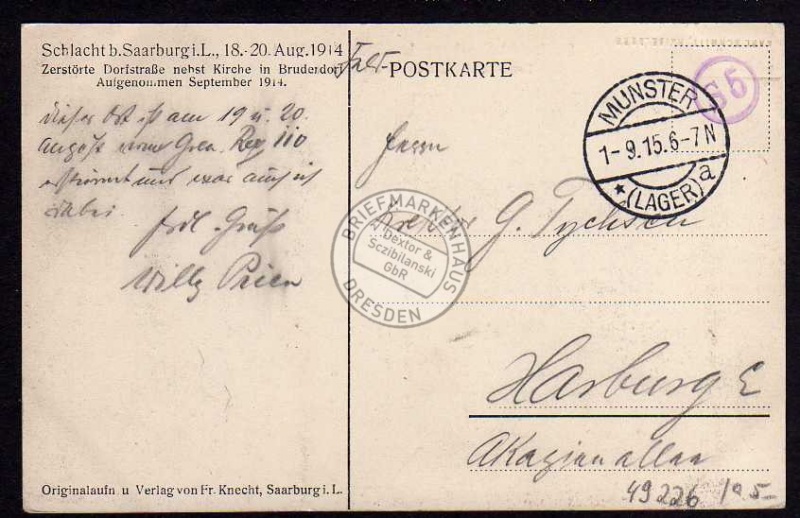 Schlacht b. Saarburg i. L., 18.-20. Aug. 1914
Zerstörte Dorfstraße nebst Kirche in Bruderdorf
Aufgenommen September 1914.
Dieser Ort ist am 19 u. 20.
August vom Gren. Reg. 110
erstürmt und war auch ich
dabei
frdl. Gruß
Willy
Originalaufn u Verlag von Fr. Knecht, Saarburg i. L.
POSTKARTE
MUNSTER
1-9.15.6-7N
*(LAGER) a
Herrn
G. Tychsen
Harburg E
Akazienallee
BRIEFMARKENHAUS
Dextor &
Sczibilanski
GbR
DRESDEN
49226